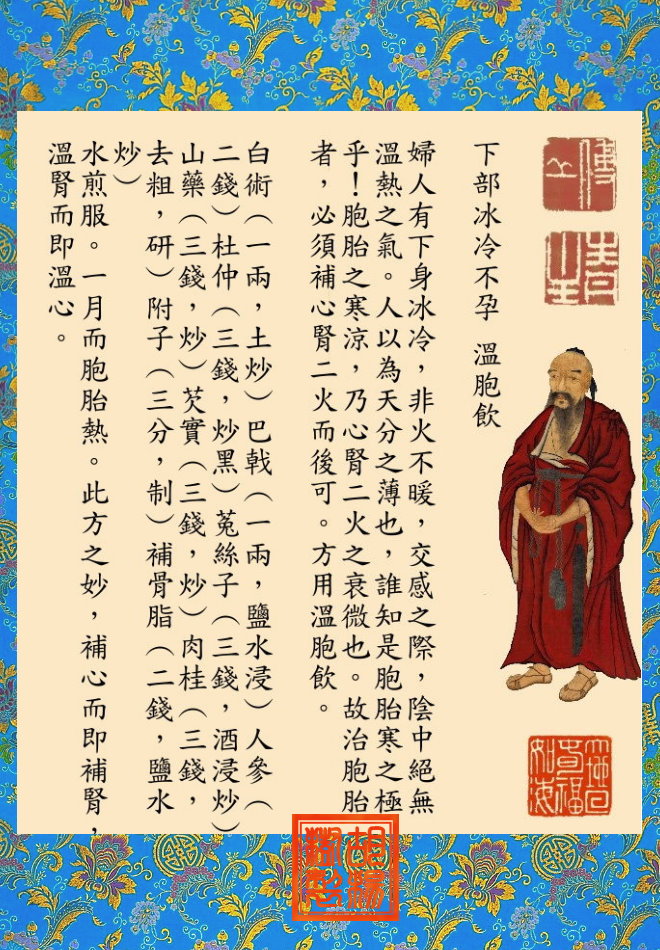 下部冰冷不孕 溫胞飲
婦人有下身冰冷，非火不暖，交感之際，陰中絕無
溫熱之氣。人以為天分之薄也，誰知是胞胎寒之極
乎！胞胎之寒涼，乃心腎二火之衰微也。故治胞胎
者，必須補心腎二火而後可。方用溫胞飲。
白術（一兩，土炒）巴戟（一兩，鹽水浸）人參（
二錢）杜仲（三錢，炒黑）菟絲子（三錢，酒浸炒）
山藥（三錢，炒）芡實（三錢，炒）肉桂（三錢，
去粗，研）附子（三分，制）補骨脂（二錢，鹽水
炒）
水煎服。一月而胞胎熱。此方之妙，補心而即補腎，
溫腎而即溫心。